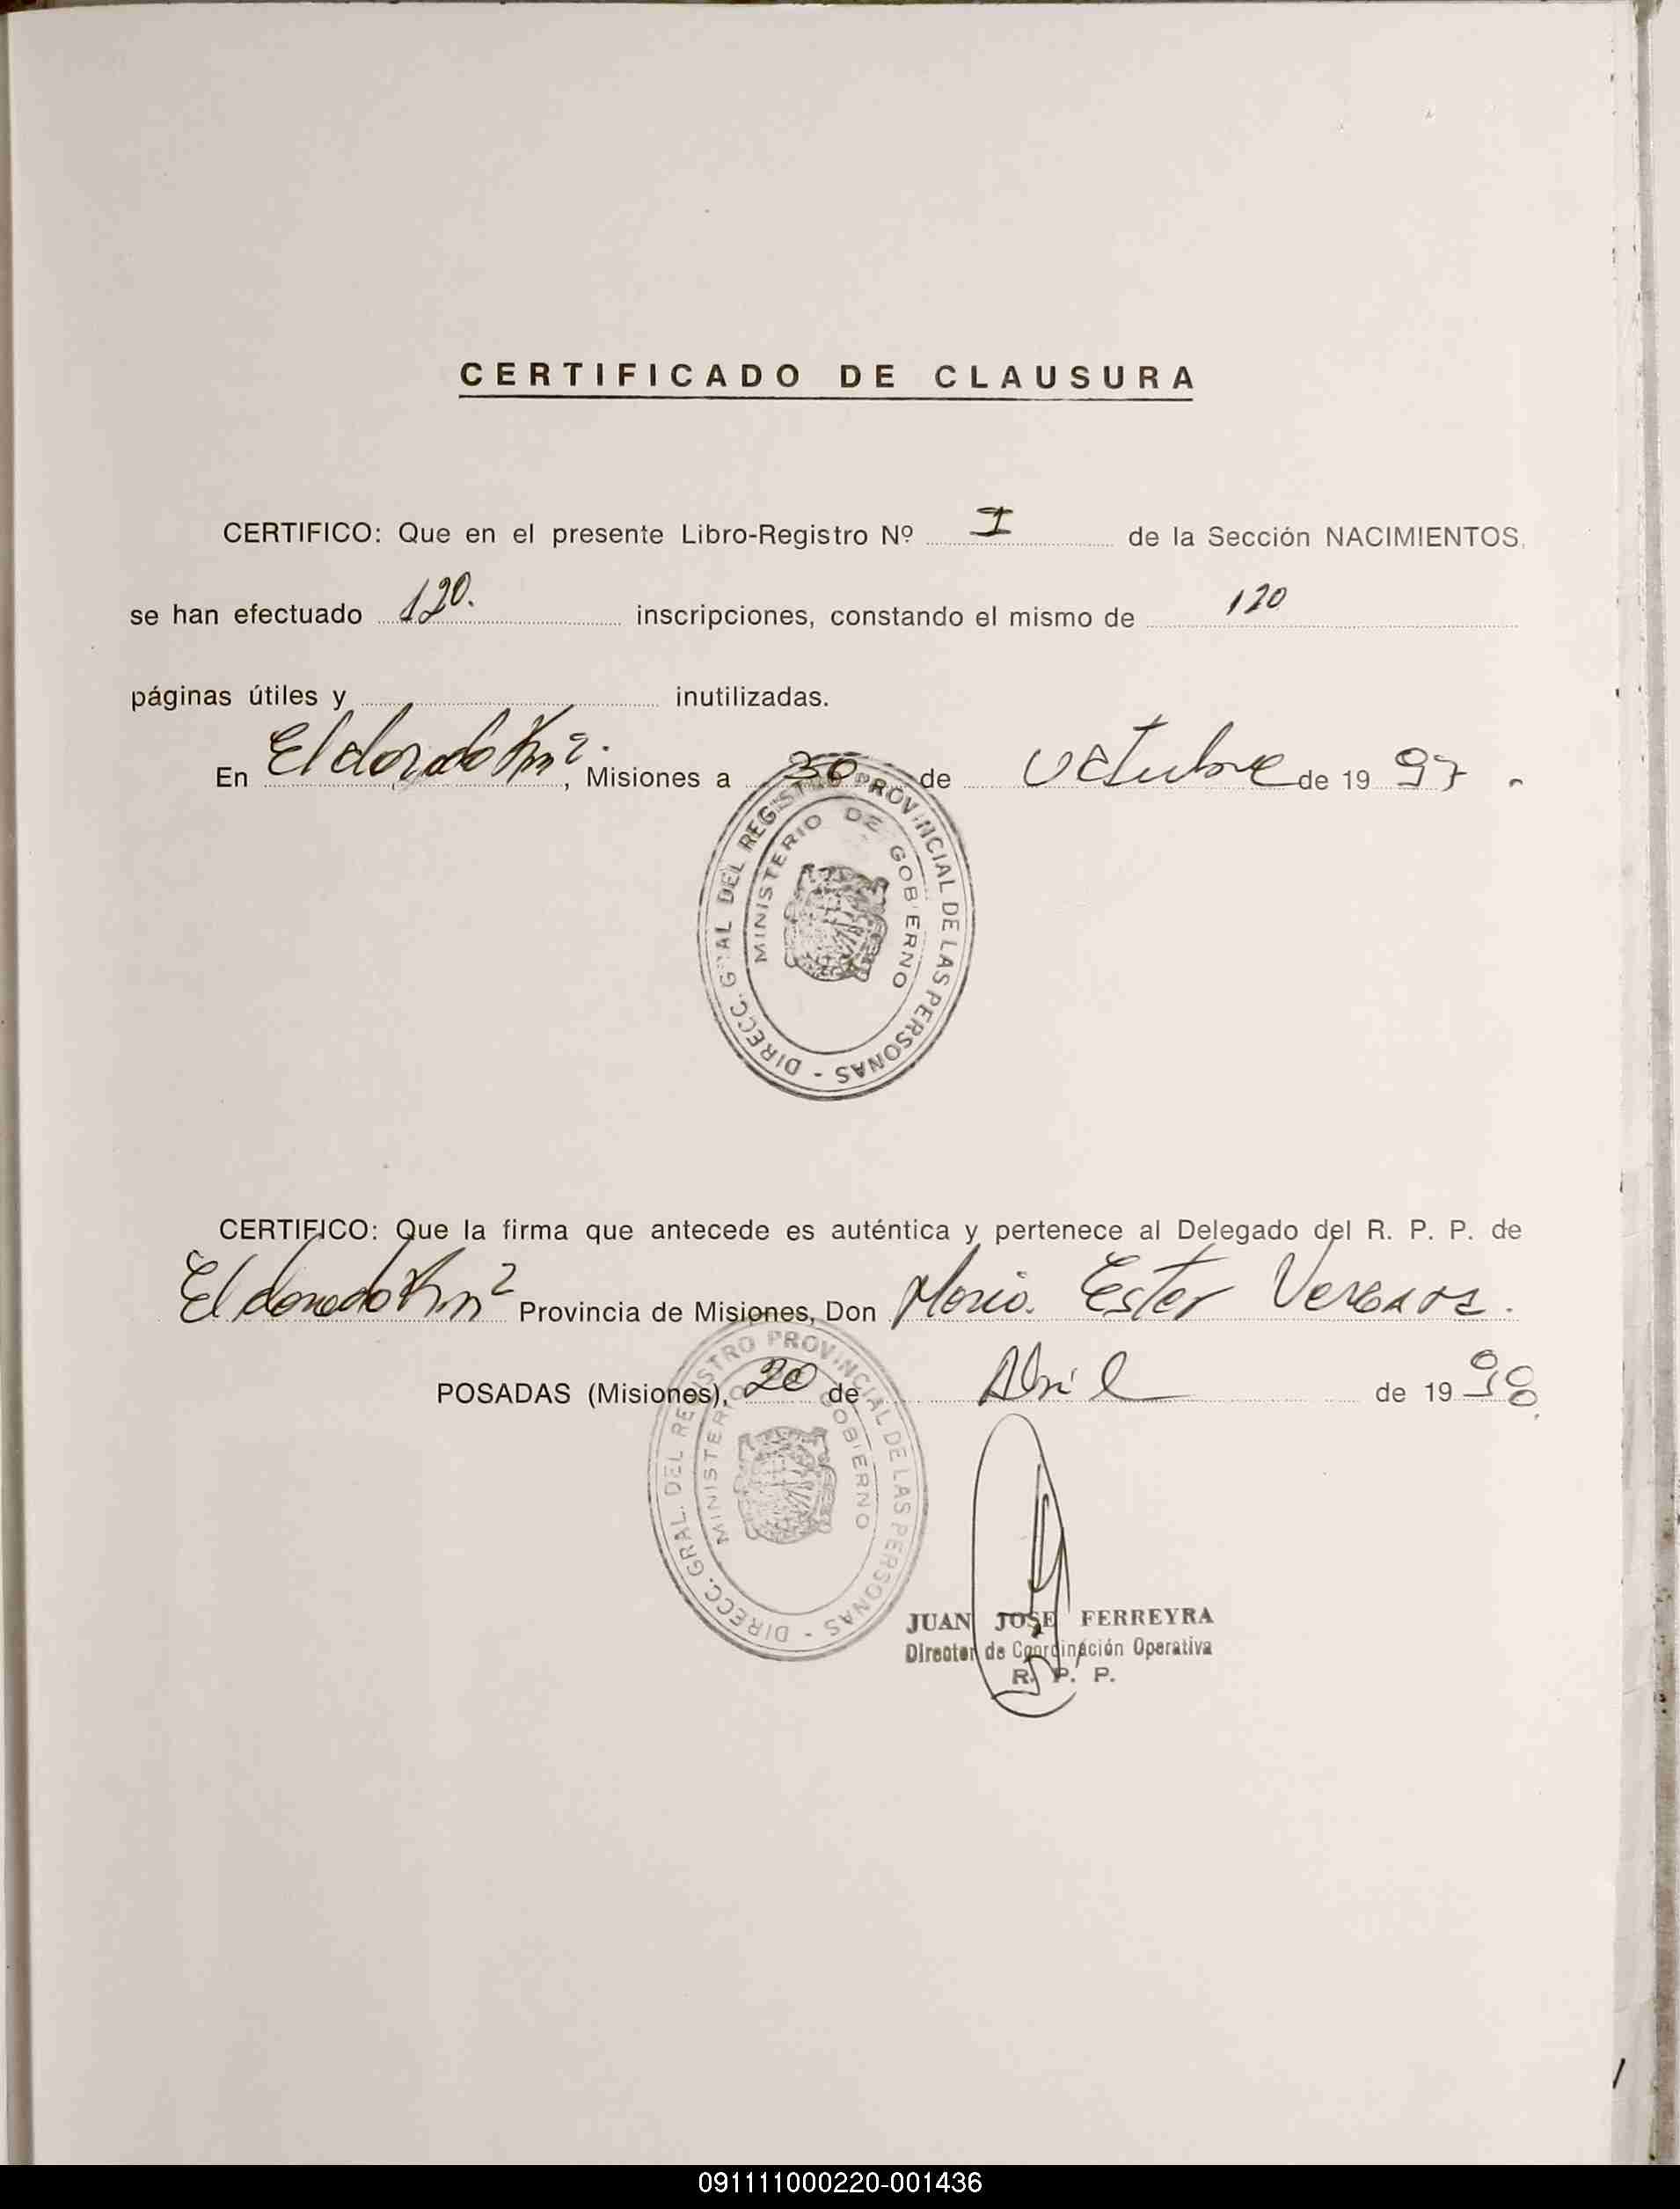 CERTIFICADO DE CLAUSURA
CERTIFICO: Que en el presente Libro-Registro Nº I de la Sección NACIMIENTOS,
se han efectuado 120. inscripciones, constando el mismo de 120
páginas útiles y inutilizadas.
En Eldorado Km 2. , Misiones a 30 de octubre de 19 97.
DIRECC. GRAL DEL REGISTRO PROVINCIAL DE LAS PERSONAS -
MINISTERIO DE GOBIERNO
CERTIFICO: Que la firma que antecede es auténtica y pertenece al Delegado del R. P. P. de
Eldorado Km 2 Provincia de Misiones, Don Maria Ester
POSADAS (Misiones), 20 de Abril de 19 98.
DIRECC. GRAL. DEL REGISTRO PROVINCIAL DE LAS PERSONAS -
MINISTERIO DE GOBIERNO
JUAN JOSE FERREYRA
Director de Coordinación Operativa
R. P. P.
091111000220-001436